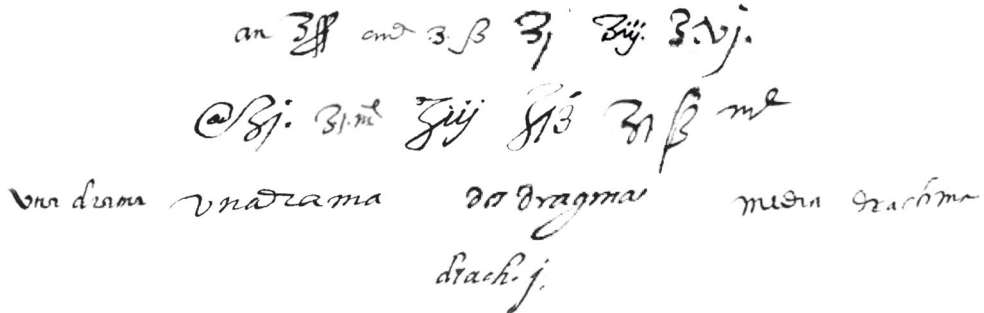 an ʒſſ omḍ ʒ.ß ʒj ʒiij. ʒ.vj.
@ʒj. ʒj.mͤ ʒiij ʒjß ʒj ß mͤ
vna drama vna drama dos dragma media drachma
drach. j.